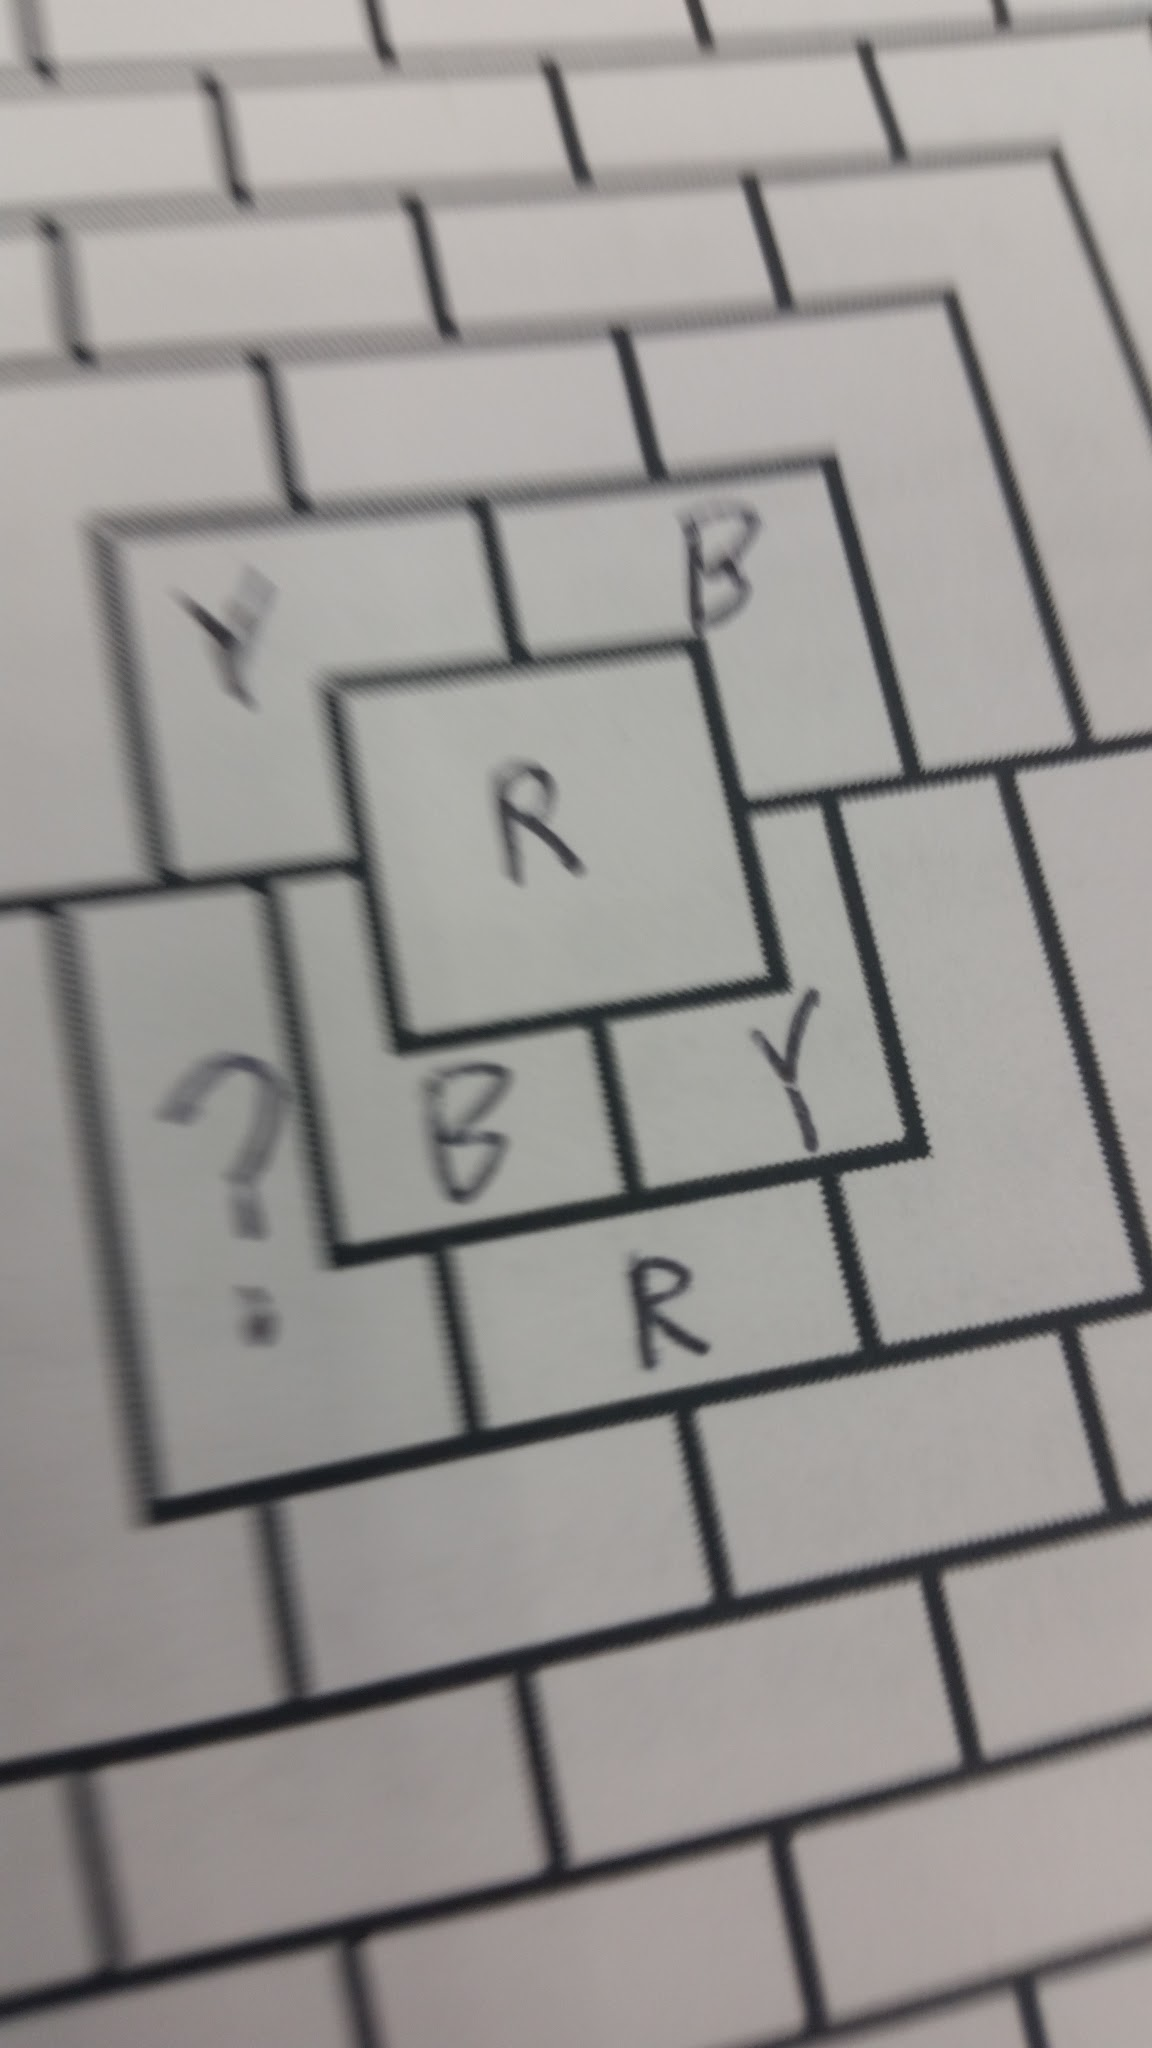 Y B
R
B Y
?
R